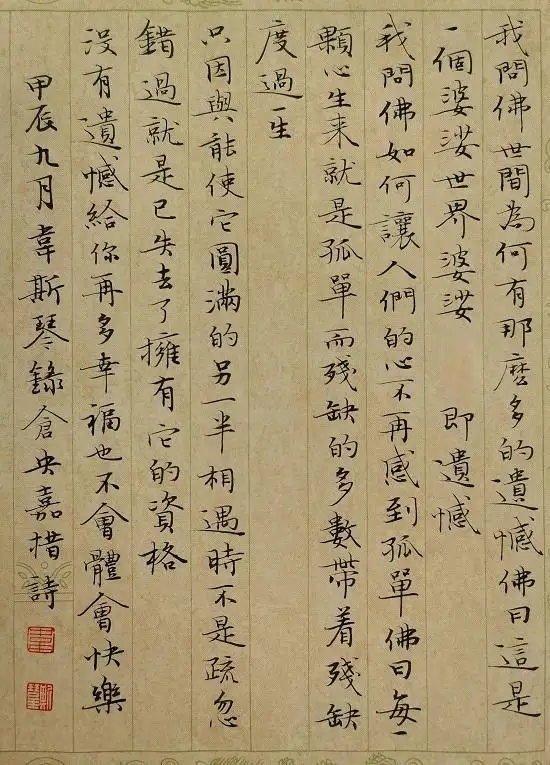 我問佛世間為何有那麽多的遺憾佛曰這是
一個婆娑世界婆娑 即遺憾
我問佛如何讓人們的心不再感到孤單佛曰每一
顆心生来就是孤單而殘缺的多數帶着殘缺
度過一生
只因與能使它圓滿的另一半相遇時不是疏忽
錯過就是已失去了擁有它的資格
没有遺憾給你再多幸福也不會體會快樂
甲辰九月韋斯琴錄倉央嘉措詩